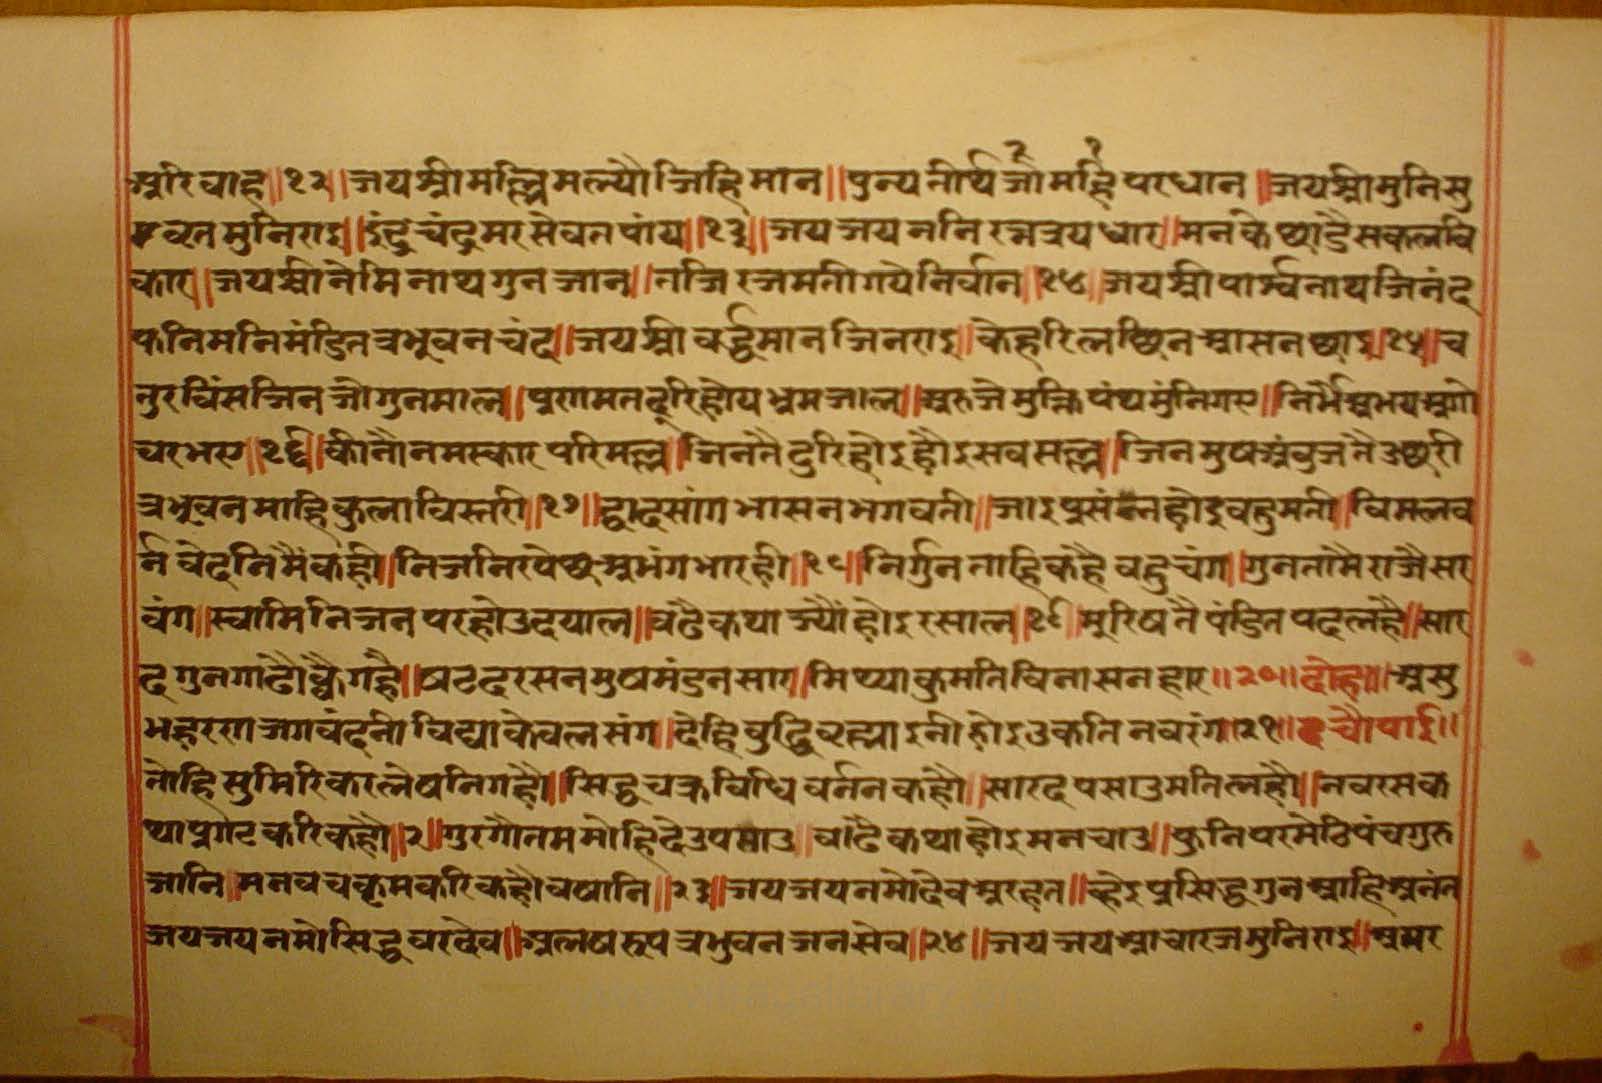 अरि वाह ॥ १२ ॥ जय श्री मल्लि मल्यौ जिहि मान ॥ पुन्य तीर्थ जौ महि परधान ॥ जय श्री मुनि सु
व्रत मुनिराइ ॥ इंद्र चंद्र मर सेवत पांय ॥ १३ ॥ जय जय नमि रत्नत्रय धार ॥ मन के छाडै सकल वि
कार ॥ जय श्री नेमिनाथ गुन जान ॥ तजि रजमती गये निर्वान ॥ १४ ॥ जय श्री पार्श्वनाथ जिनंद
फनि मनि मंडित त्रभुवन चंद ॥ जय श्री वर्द्धमान जिनराइ ॥ केहरि लछिन आसन छाइ ॥ १५ ॥ च
तुरविंस जिन जौ गुनमाल ॥ पुरामत दूरि होय भ्रमजाल ॥ अरु जे मुक्ति पंथ मुंनि गए ॥ निर्भै अभय अगो
चर भए ॥ १६ ॥ कीनौ नमस्कार परिमल्ल ॥ जिनतै दुरि होइ सब सल्ल ॥ जिन मुष अंबुज तै उछरी
त्रभुवन माहि कुला विस्तरी ॥ १७ ॥ द्वादसांग भासन भगवती ॥ जाइ प्रसंन होइ बहु मती ॥ विमल व
र्न वेदनि मै कही ॥ निज निरपेछ अभंग भारही ॥ १८ ॥ निर्गुन ताहि कहै बहु चंग ॥ गुन तामै राजै सार
वंग ॥ स्वामिनि जन पर होउ दयाल ॥ वंढै कथा ज्यौं होइ रसाल ॥ १९ ॥ मूरिष तै पंडित पद लहै ॥ सार
द गुन गाढौ ह्वै गहै ॥ षट दरसन मुष मंडन सार ॥ मिथ्या कुमति विनासन हार ॥ २० ॥ दोहा ॥ असु
भ हरण जगवंदनी विद्या केवल संग ॥ देहि बुद्धि ब्रह्माइनी होइ उकति नवरंग ॥ २१ ॥ चौपाई ॥
तोहि सुमिरि कर लेषनि गहौ ॥ सिद्धचक्र विधि वर्नन कहौ ॥ सारद पसाउ मति लहौ ॥ नव रस क
था प्रगट करि कहौ ॥ २ ॥ गुर गौतम मोहि देउ पसाउ ॥ वाढै कथा होइ मन चाउ ॥ फुनि परमेठि पंच गुरु
जानि ॥ मन वच क्रम करि कहौ वषानि ॥ २३ ॥ जय जय नमो देव अरहत ॥ प्रसिद्ध गुन आहि अनंत
जय जय नमो सिद्ध वर देव ॥ अलष रूप त्रभुवन जन सेव ॥ २४ ॥ जय जय आचारज मुनिराइ ॥